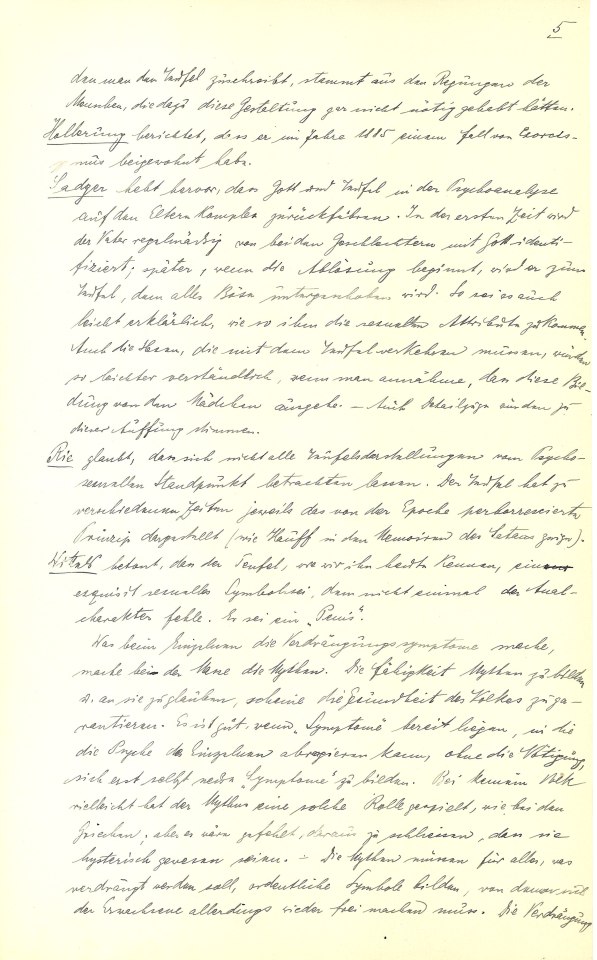 5
den man dem Teufel zuschreibt, stammt aus den Regungen der
Menschen, die dazu diese Gestaltung gar nicht nötig gehabt hätten.
Hollerung berichtet, dass er im Jahre 1885 einem Fall von Exorcis-
mus beigewohnt habe.
Sadger hebt hervor, dass Gott und Teufel in der Psychoanalyse
auf den Elternkomplex zurückführen. In der ersten Zeit wird
der Vater regelmässig von beiden Geschlechtern mit Gott identi-
fiziert; später, wenn die Ablösung beginnt, wird er zum
Teufel, dem alles Böse untergeschoben wird. So sei es auch
leicht erklärlich, wieso ihm die sexuellen Attribute zukommen.
Auch die Hexen, die mit dem Teufel verkehren müssen, würden
so leichter verständlich, wenn man annähme, dass diese Bil-
dung von den Mädchen ausgehe. – Auch Detailzüge würden zu
dieser Auffassung stimmen.
Rie glaubt, dass sich nicht alle Teufelsdarstellungen vom Psycho-
sexuellen Standpunkt betrachten lassen. Der Teufel hat zu
verschiedenen Zeiten jeweils das von der Epoche perhorrescierte
Prinzip dargestellt (wie Hauff in den Memoiren des Satans zeige).
Wittels betont, dass der Teufel, wie wir ihn heute kennen, ein
exquisit sexuelles Symbol sei, dem nicht einmal der Anal-
charakter fehle. Er sei ein „Penis".
Was beim Einzelnen die Verdrängungssymptome mache,
mache bei der Masse die Mythen. Die Fähigkeit Mythen zu bilden
u. an sie zu glauben, scheine die Gesundheit des Volkes zu ga-
rantieren. Es ist gut, wenn „Symptome" bereit liegen, in die
die Psyche des Einzelnen abreagieren kann, ohne die Nötigung,
sich erst selbst neue „Symptome" zu bilden. Bei keinem Volk
vielleicht hat der Mythus eine solche Rolle gespielt, wie bei den
Griechen; aber es wäre gefehlt, daraus zu schliessen, dass sie
hysterisch gewesen seien. – Die Mythen müssen für alles, was
verdrängt werden soll, ordentliche Symbole bilden, von denen sich
der Erwachsene allerdings wieder frei machen muss. Die Verdrängung